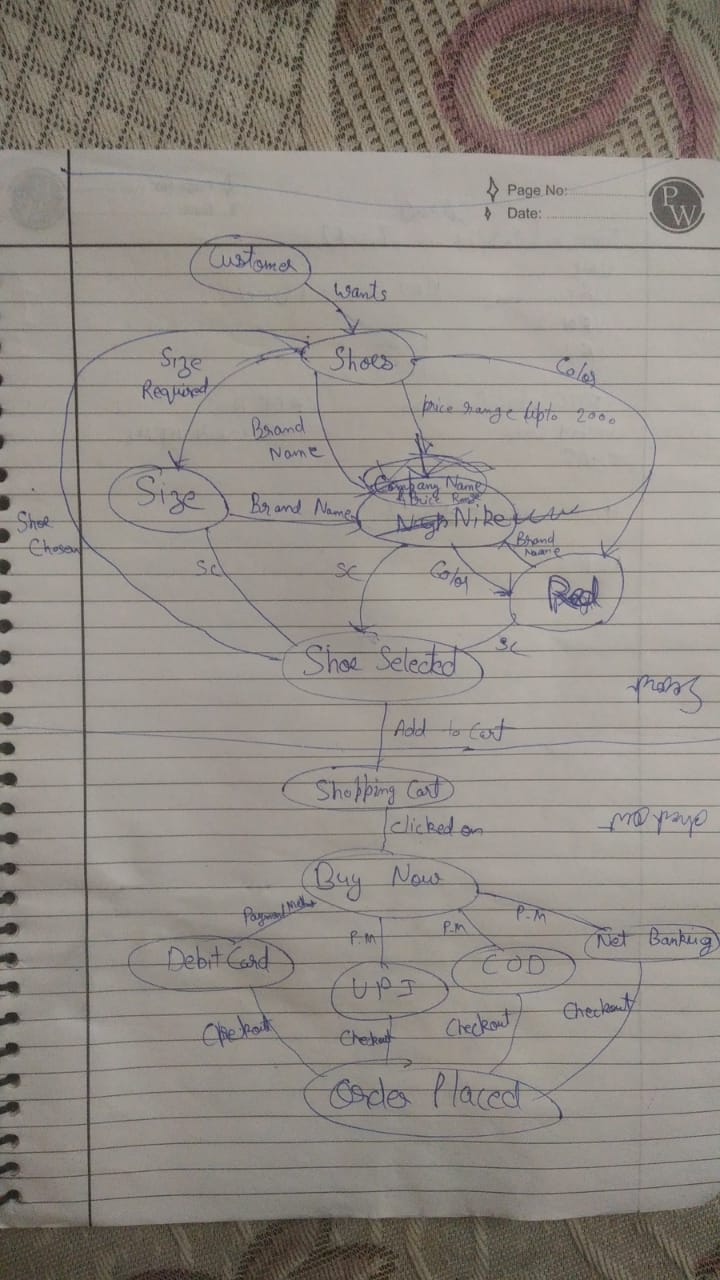 Page No:
Date:
PW
Customer
Wants
Shoes
Size
Required
Color
price range (upto 2000
Brand
Name
Company Name
& Price Range
Size
Brand Name
Nike
Brand
Name
Shoe
Chosen
SC
SC
Color
Red
SC
Shoe Selected
Add to Cart
Shopping Cart
Clicked on
check out
Buy Now
Payment Method
P-M
P-M
P-M
Debit Card
UPI
COD
Net Banking
Checkout
Checkout
Checkout
Checkout
Order Placed